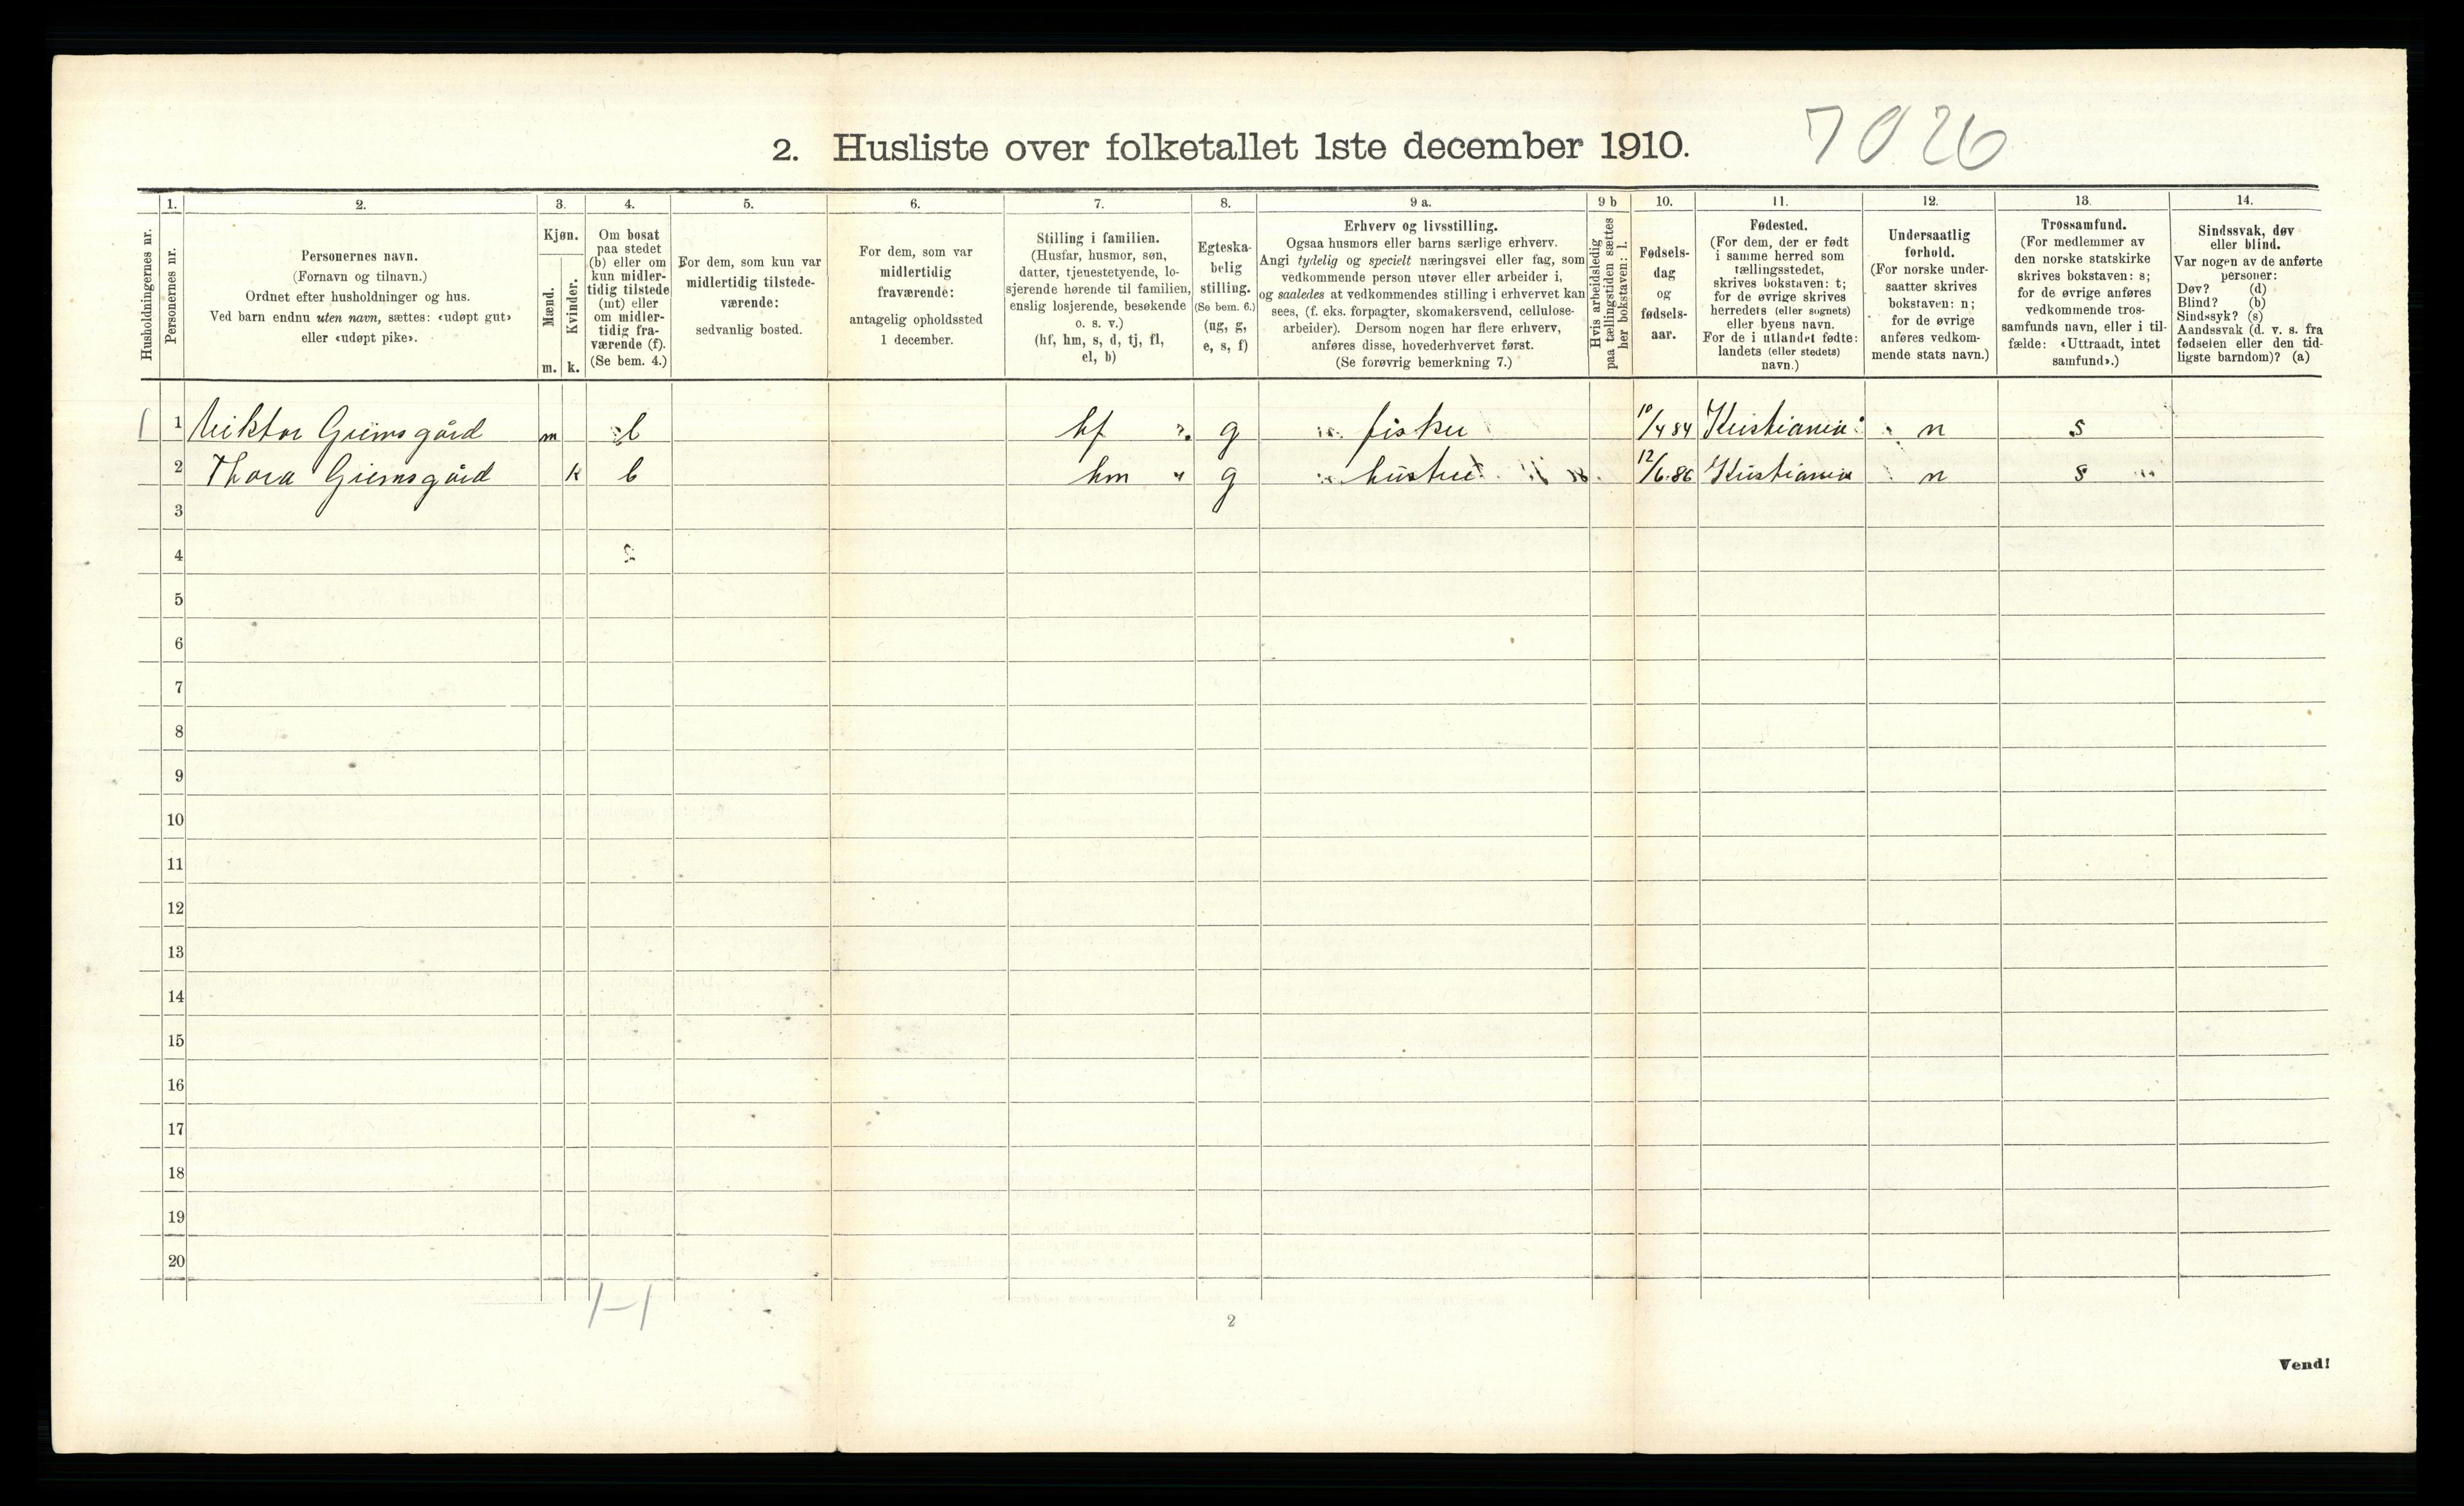 2. Husliste over folketallet 1ste december 1910. 7026
Husholdningernes nr.
1.
Personernes nr.
2.
Personernes navn.
(Fornavn og tilnavn.)
Ordnet efter husholdninger og hus.
Ved barn endnu uten navn, sættes: «udøpt gut»
eller «udøpt pike».
3.
Kjøn.
Mænd.
m.
Kvinder.
k.
4.
Om bosat
paa stedet
(b) eller om
kun midler-
tidig tilstede
(mt) eller
om midler-
tidig fra-
værende (f).
(Se bem. 4.)
5.
For dem, som kun var
midlertidig tilstede-
værende:
sedvanlig bosted.
6.
For dem, som var
midlertidig
fraværende:
antagelig opholdssted
1 december.
7.
Stilling i familien.
(Husfar, husmor, søn,
datter, tjenestetyende, lo-
sjerende hørende til familien,
enslig losjerende, besøkende
o. s. v.)
(hf, hm, s, d, tj, fl,
el, b)
8.
Egteska-
belig
stilling.
(Se bem. 6.)
(ug, g,
e, s, f)
9 a.
Erhverv og livsstilling.
Ogsaa husmors eller barns særlige erhverv.
Angi tydelig og specielt næringsvei eller fag, som
vedkommende person utøver eller arbeider i,
og saaledes at vedkommendes stilling i erhvervet kan
sees, (f. eks. forpagter, skomakersvend, cellulose-
arbeider). Dersom nogen har flere erhverv,
anføres disse, hovederhvervet først.
(Se forøvrig bemerkning 7.)
9 b
Hvis arbeidsledig
paa tællingstiden sættes
her bokstaven: l.
10.
Fødsels-
dag
og
fødsels-
aar.
11.
Fødested.
(For dem, der er født
i samme herred som
tællingsstedet,
skrives bokstaven: t;
for de øvrige skrives
herredets (eller sognets)
eller byens navn.
For de i utlandet fødte:
landets (eller stedets)
navn.)
12.
Undersaatlig
forhold.
(For norske under-
saatter skrives
bokstaven: n;
for de øvrige
anføres vedkom-
mende stats navn.)
13.
Trossamfund.
(For medlemmer av
den norske statskirke
skrives bokstaven: s;
for de øvrige anføres
vedkommende tros-
samfunds navn, eller i til-
fælde: «Uttraadt, intet
samfund».)
14.
Sindssvak, døv
eller blind.
Var nogen av de anførte
personer:
Døv? (d)
Blind? (b)
Sindssyk? (s)
Aandssvak (d. v. s. fra
fødselen eller den tid-
ligste barndom)? (a)
1 Viktor Grimsgård m b hf g fisker 10/4 84 Kristiania n s
2 Thora Grimsgård k b hm g hustru 12/6.86 Kristiania n s
3
4
5
6
7
8
9
10
11
12
13
14
15
16
17
18
19
20
1-1
2
Vend!